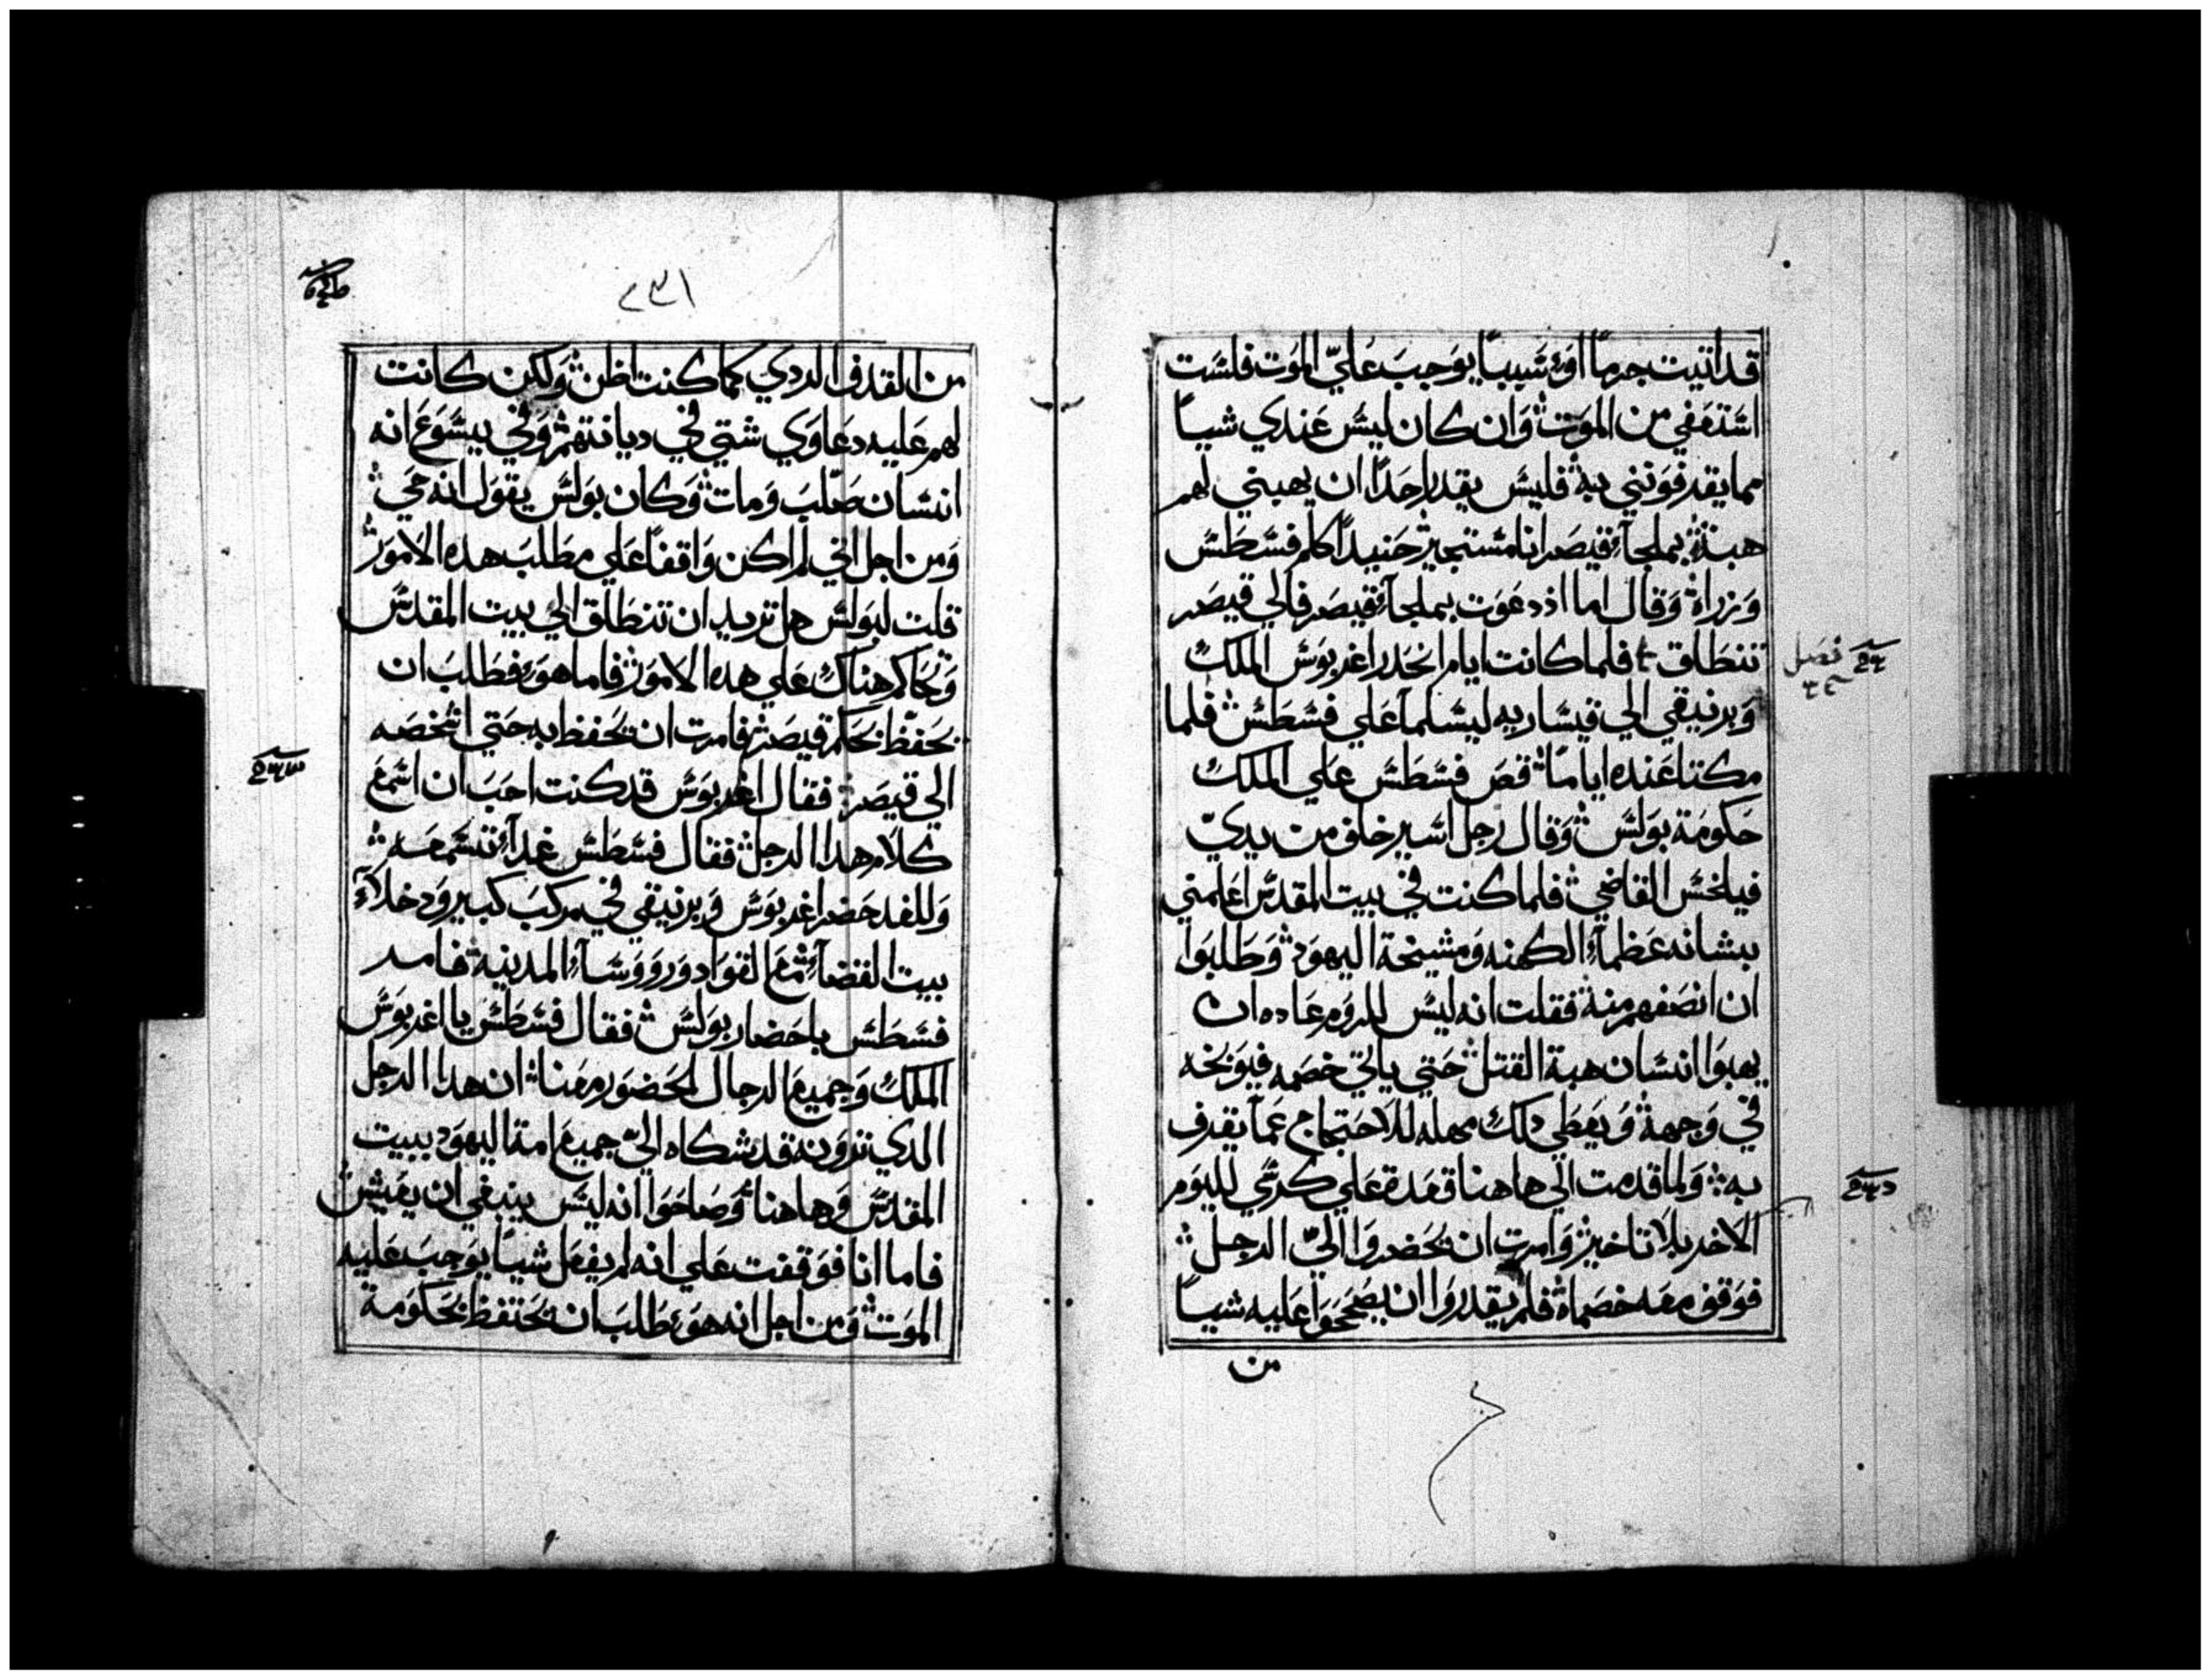 قد اتيت جرماً اوَ شيياً يوَجبَ عَليّ الموَت فلسَت
اسَتعَفي من الموَت وَان كان ليسَ عَندي شياً
مما يقدفوَنني به فليسَ يقدر احَداً ان يهبني لهم
هبة بملجآء قيصَر انا مستجير حَنيداً كلم فسَطَسَ
وَزراه وَقال اما اذ دعَوَت بملجآء قيصَر فالي قيصَر
تنطَلق فلما كانت ايام انحَدر اغريوَسَ الملك
وَبرنيقي الي قيسَاريه ليسَلما عَلي فسَطَسَ فلما
مكتا عَنده اياماً قصَ فسَطَسَ عَلي الملك
حَكوَمة بوَلسَ وَقال رجل اسَير خلف من يديّ
فيلخسَ القاضي فلما كنت في بيت المقدسَ اعَلمني
بشانه عَظمآء الكهنه وَمشيخة اليهوَد وَطَلبوَا
ان انصَفهم منه فقلت انه ليسَ للروَم عَاده ان
يهبوَا انسَان هبة القتل حَتي ياتي خصَمه فيوَبخه
في وَجهه وَيعَطي دلك مهله للاحَتجاج عَما يقدف
به وَلما قدمت الي هاهنا قعَدة عَلي كرسَي لليوَم
الاخر بلا تاخير وَامرت ان يحَضروَا اليّ الرجل
فوَقف معَه خصَماه فلم يقدروَا ان يصَححَوَا عَليه شياً
من
فصَل
٢٣١
من القدف الردي كما كنت اظن وَلكن كانت
لهم عَليه دعَاوَي شتي في ديانتهم وَفي يسَوَعَ انه
انسَان صَلبَ وَمات وَكان بوَلسَ يقوَل انه حَي
وَمن اجل اني لم اكن وَاقفاً عَلي مطَلبَ هده الاموَر
قلت لبوَلسَ هل تريد ان تنطَلق الي بيت المقدسَ
وَتحَاكم هناك عَلي هده الاموَر فاما هوَ فطَلبَ ان
يحَفظ بحَكم قيصَر فامرت ان يحَفظ به حَتي اشخصَه
الي قيصَر فقال اغريوَسَ قد كنت احَبَ ان اسَمعَ
كلام هدا الرجل فقال فسَطَسَ غداً تسَمعَه
وَللغد حَضر اغريوَسَ وَبرنيقي في مركبَ كبير وَدخلاء
بيت القضآء معَ القوَاد وَروَوَسَآء المدينه فامر
فسَطَسَ باحَضار بوَلسَ فقال فسَطَسَ يا اغريوَسَ
الملك وَجميعَ الرجال الحَضوَر معَنا ان هدا الرجل
الدي تروَنه قد شكاه اليّ جميعَ امة اليهوَد ببيت
المقدسَ وَهاهنا وَصَاحَوَا انه ليسَ ينبغي ان يعَيش
فاما انا فوَقفت عَلي انه لم يفعَل شياً يوَجبَ عَليه
الموَت وَمن اجل انه هوَ طَلبَ ان يحَتفظ بحَكوَمة